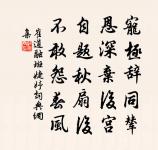 寵極辭同輦
恩深棄後宮
自題秋扇後
不敢怨春風
崔道融班婕妤詞典網
集